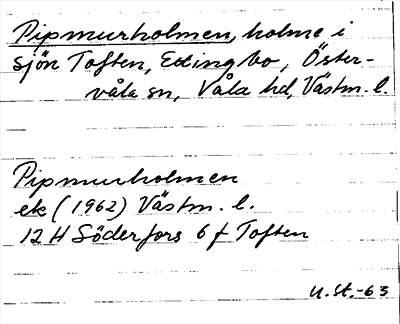 Pipmurholmen, holme i
sjön Toften, Edingbo, Öster-
våla sn, Våla hd, Västm. l.
Pipmurholmen
ek (1962) Västm. l.
12 H Söderfors 6 f Toften
U. St. -63